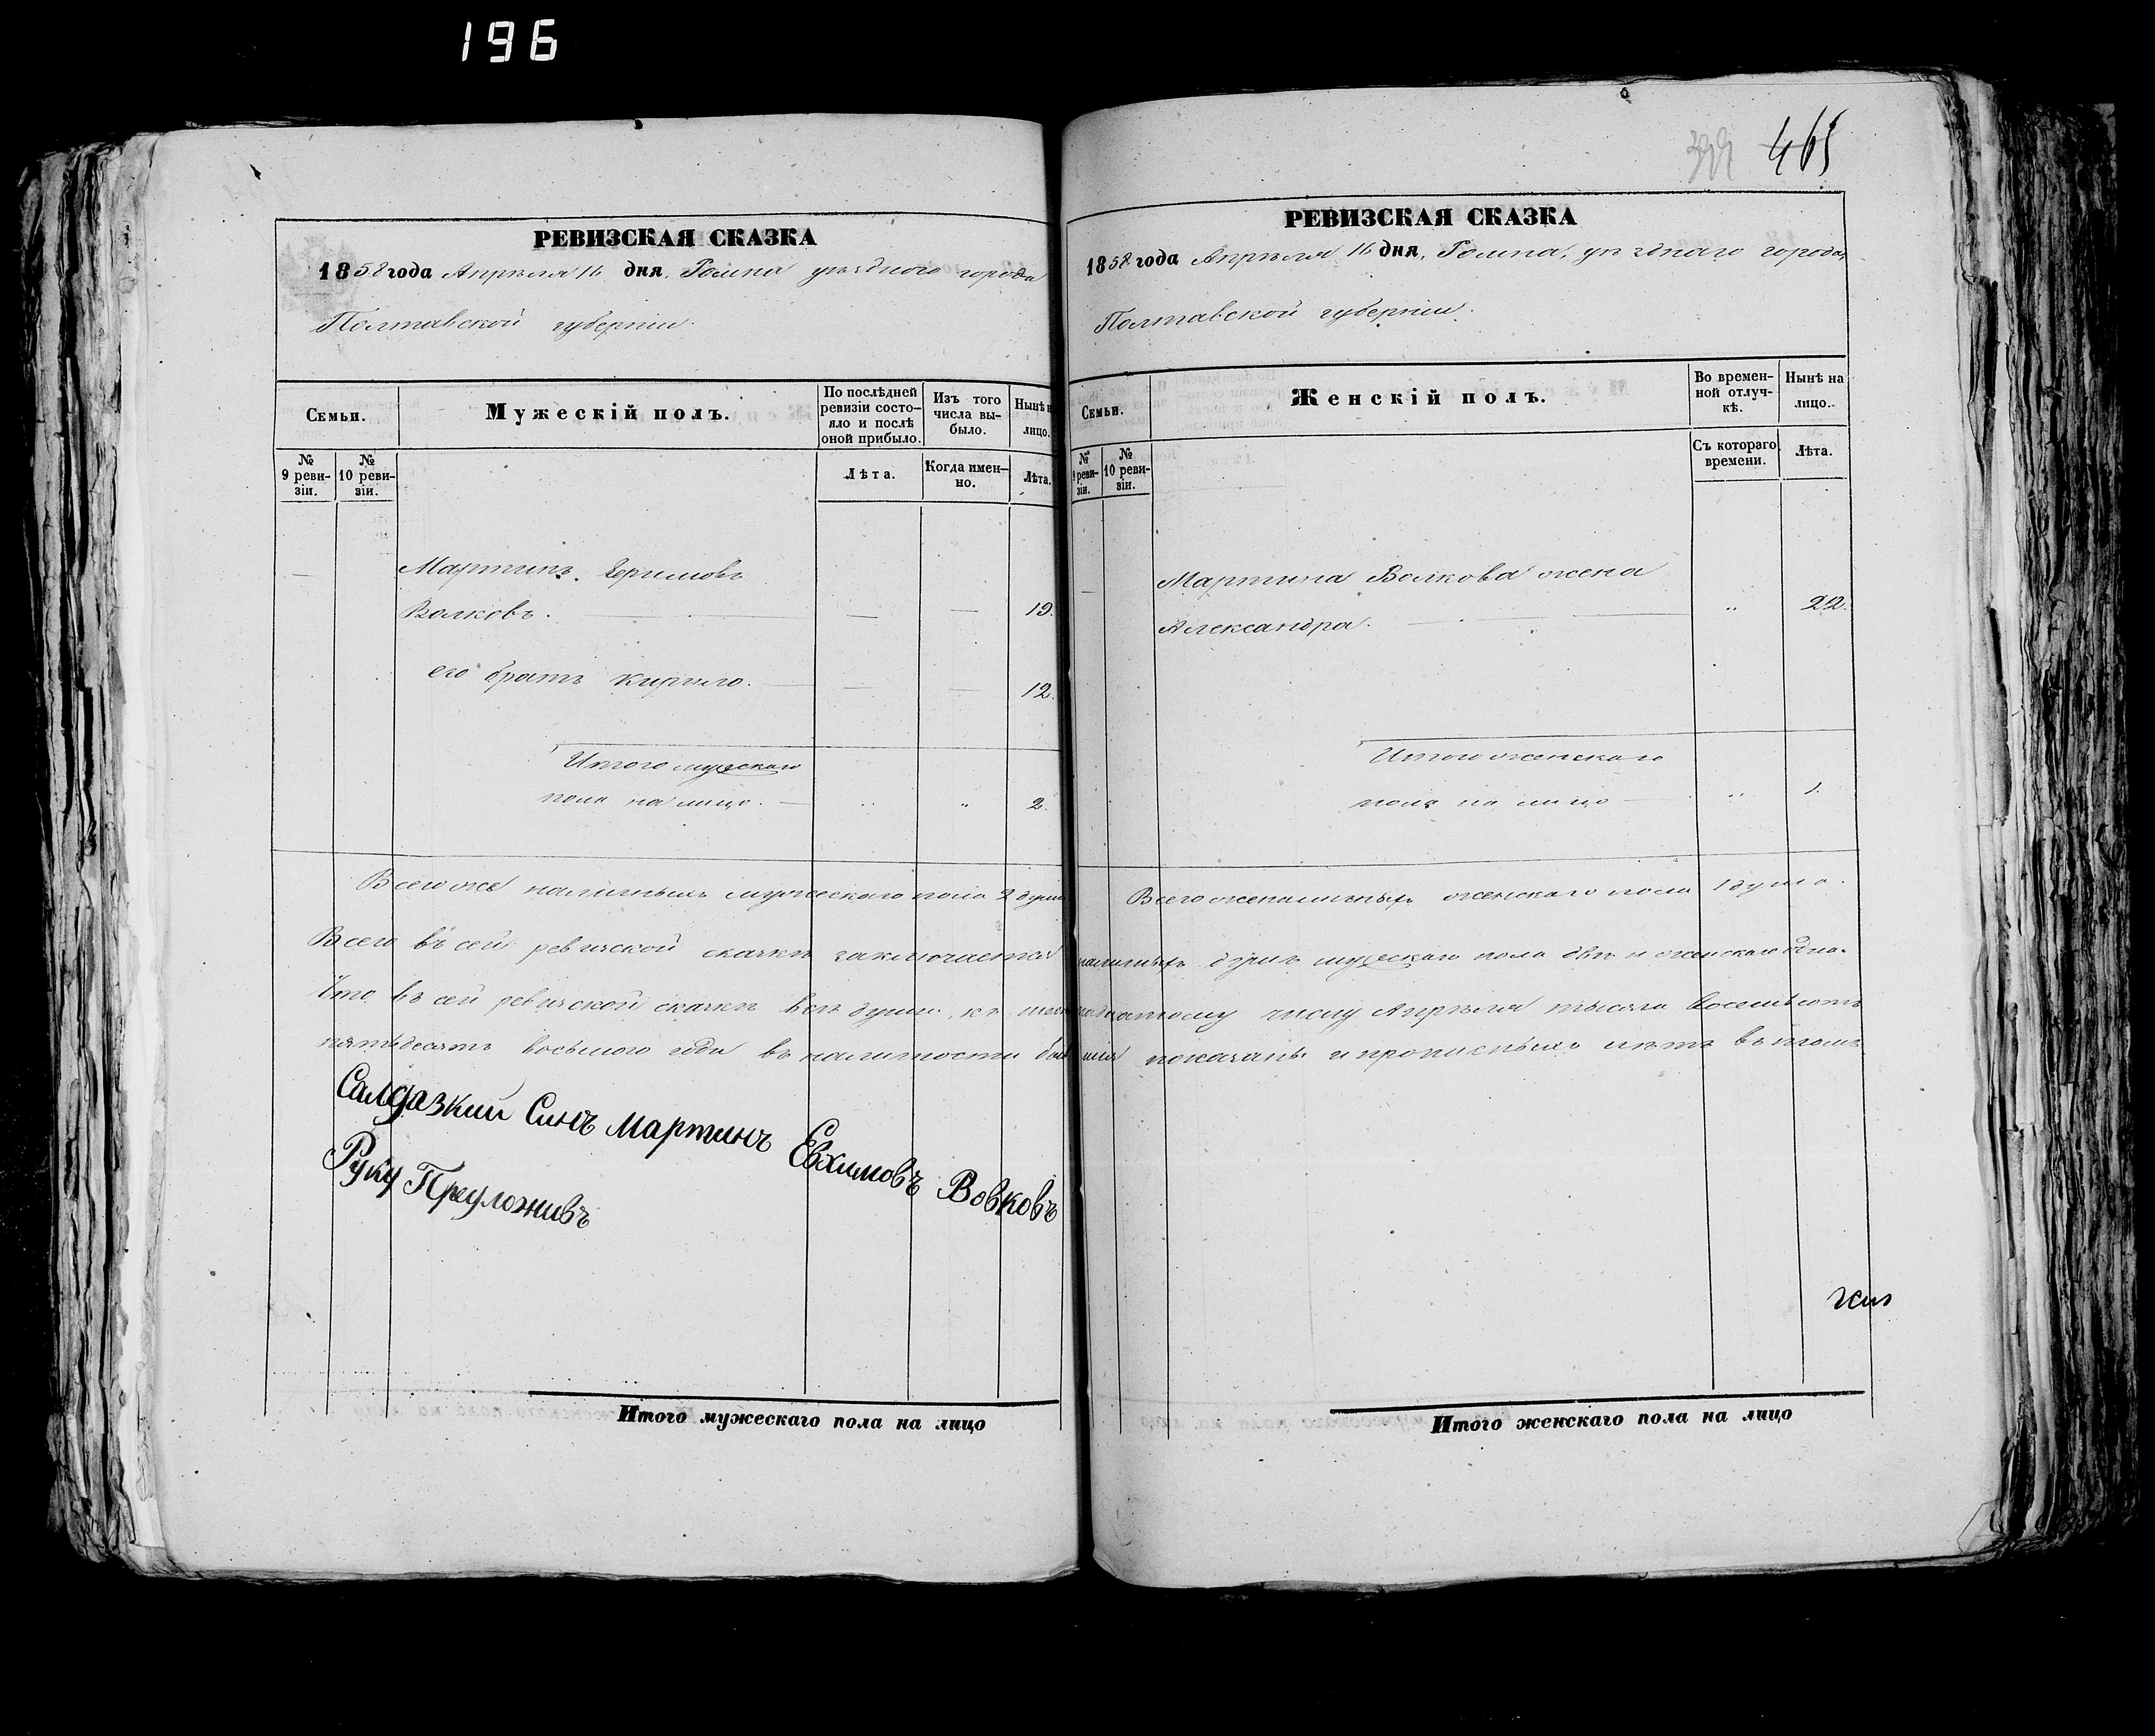 196
465
РЕВИЗСКАЯ СКАЗКА
1858 года Апрѣля 16 дня, Ромна уѣзднаго города
Полтавской губерніи.
Семьи.
Мужескій полъ.
По послѣдней ревизіи состояло и послѣ оной прибыло.
Изъ того числа выбыло.
Нынѣ на лицо.
№ 9 ревизіи.
№ 10 ревизіи.
Лѣта.
Когда именно.
Лѣта.
Мартинъ Ефимовъ
Волковъ. — — — 19.
его братъ Кирило. — — — 12.
Итого мужескаго
пола на лицо. — „ „ 2.
Всего же наличныхъ мужескаго пола 2 души
РЕВИЗСКАЯ СКАЗКА
1858 года Апрѣля 16 дня, Ромна, уѣзднаго города,
Полтавской губерніи.
Семьи.
Женскій полъ.
Во временной отлучкѣ.
Нынѣ на лицо.
№ 9 ревизіи.
№ 10 ревизіи.
Съ котораго времени.
Лѣта.
Мартина Волкова жена
Александра. — „ 22.
Итого женскаго
пола на лицо — „ 1.
Всего же наличныхъ женскаго пола 1 душа.
Всего въ сей ревизской сказкѣ заключается наличныхъ душъ мужескаго пола двѣ и женскаго одна.
Что въ сей ревизской сказкѣ всѣ души, къ шестнадцатому числу Апрѣля тысяча восемьсотъ
пятьдесятъ восьмого года въ наличности бывшія показаны и прописныхъ нѣтъ въ томъ
Салдазкий Синъ Мартинъ Евхимовъ Вовковъ
Руку Преуложивъ
Итого мужескаго пола на лицо
Итого женскаго пола на лицо